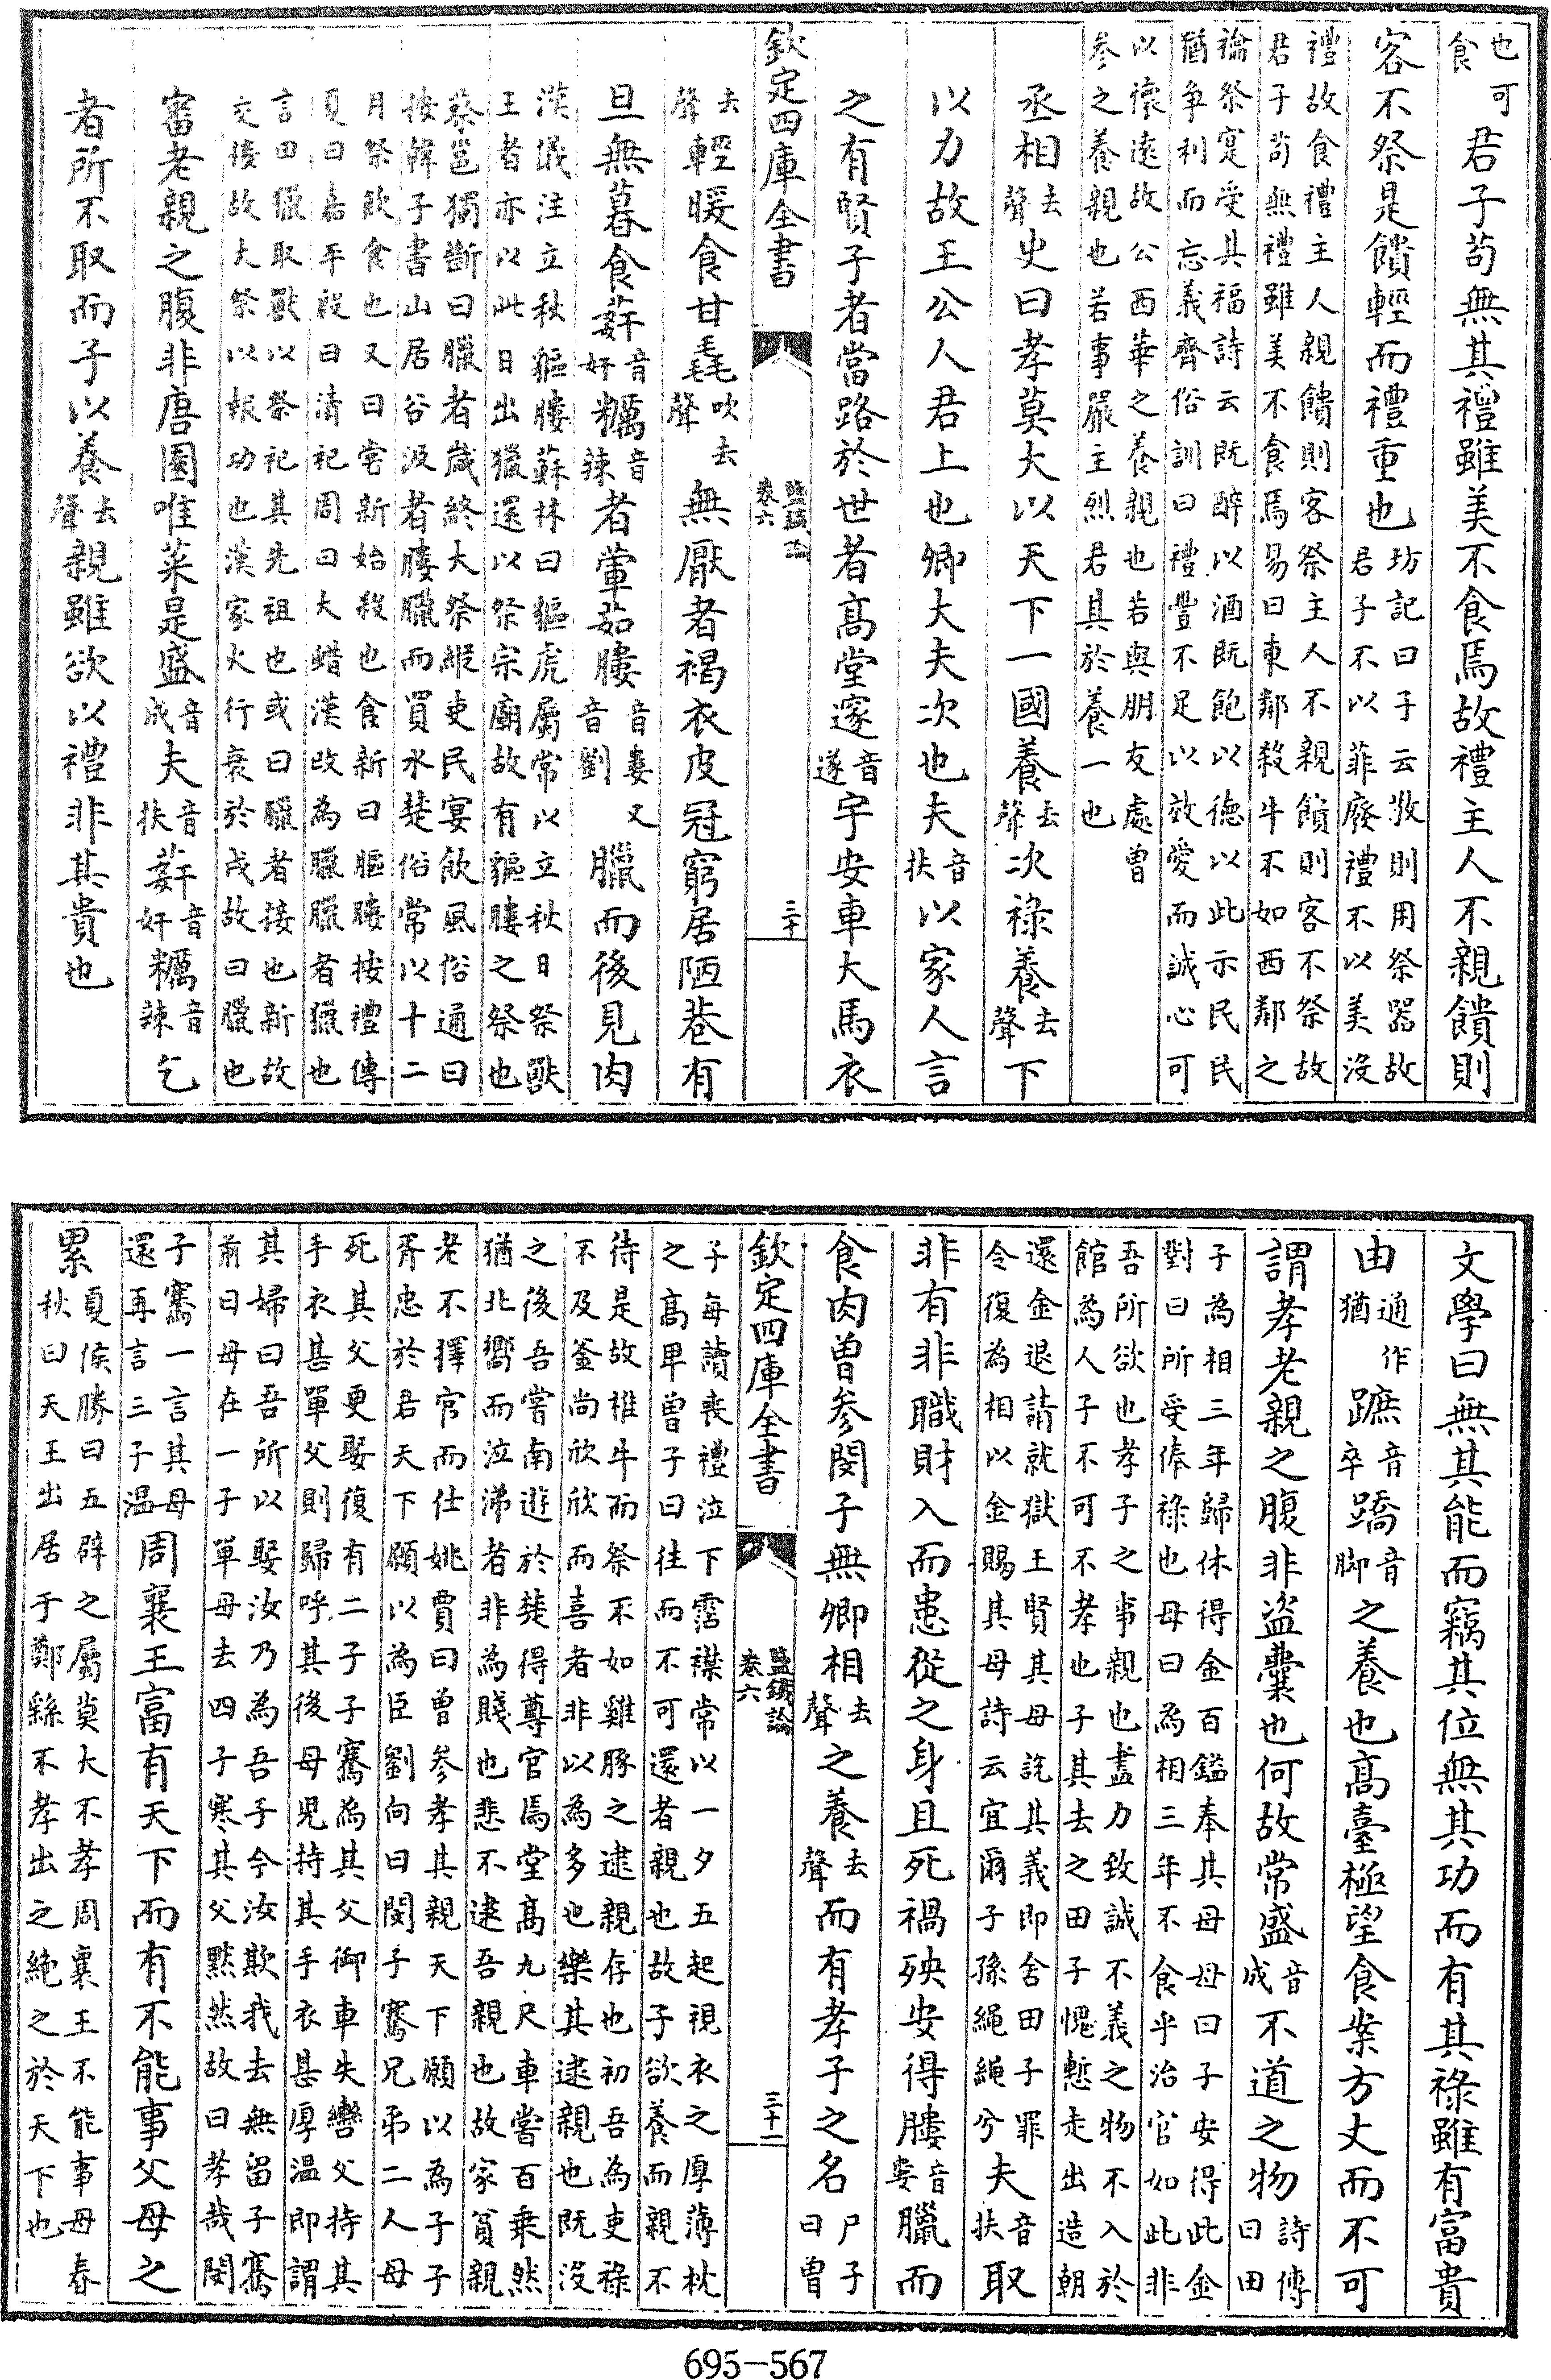 也可食君子苟無其禮雖美不食焉故禮主人不親饋則
客不祭是饋輕而禮重也坊記曰子云敬則用祭器故君子不以菲廢禮不以美沒
禮故食禮主人親饋則客祭主人不親饋則客不祭故君子苟無禮雖美不食焉易曰東鄰殺牛不如西鄰之
禴祭寔受其福詩云既醉以酒既飽以德以此示民民猶争利而忘義齊俗訓曰禮豐不足以效愛而誠心可
以懷遠故公西華之養親也若與朋友處曾参之養親也若事嚴主烈君其於養一也
丞相去聲史曰孝莫大以天下一國養去聲次祿養去聲下
以力故王公人君上也卿大夫次也夫音扶以家人言
之有賢子者當路於世者髙堂邃音遂宇安車大馬衣
欽定四庫全書 鹽鐵論卷六 三十
去聲輕暖食甘毳吹去聲無厭者褐衣皮冠窮居陋巷有
旦無暮食音奸糲音辣者葷茹膢音婁又音劉臘而後見肉
漢儀注立秋貙膢蘇林曰貙虎屬常以立秋日祭獸王者亦以此日出獵還以祭宗廟故有貙膢之祭也
蔡邕獨斷曰臘者歲終大祭縱吏民宴飲風俗通曰按韓子書山居谷汲者膢臘而買水楚俗常以十二
月祭飲食也又曰甞新始殺也食新曰膢按禮傳夏曰嘉平殷曰清祀周曰大蜡漢改為臘臘者獵也
言田獵取獸以祭祀其先祖也或曰臘者接也新故交接故大祭以報功也漢家火行衰於戌故曰臘也
審老親之腹非唐園唯菜是盛音成夫音扶音奸糲音辣乞
者所不取而子以養去聲親雖欲以禮非其貴也
文學曰無其能而竊其位無其功而有其祿雖有富貴
由通作猶蹠音卒蹻音脚之養也髙臺極望食案方丈而不可
謂孝老親之腹非盜囊也何故常盛音成不道之物詩傳曰田
子為相三年歸休得金百鎰奉其母母曰子安得此金對曰所受俸祿也母曰為相三年不食乎治官如此非
吾所欲也孝子之事親也盡力致誠不義之物不入於館為人子不可不孝也子其去之田子愧慙走出造朝
還金退請就獄王賢其母說其義即舍田子罪令復為相以金賜其母詩云宜爾子孫繩繩兮夫音扶取
非有非職財入而患從之身且死禍殃安得膢音婁臘而
食肉曾参閔子無卿相去聲之養去聲而有孝子之名尸子曰曾
欽定四庫全書 鹽鐵論卷六 三十一
子每讀喪禮泣下霑襟常以一夕五起視衣之厚薄枕之髙卑曾子曰往而不可還者親也故子欲養而親不
待是故椎牛而祭不如雞豚之逮親存也初吾為吏祿不及釜尚欣欣而喜者非以為多也樂其逮親也既沒
之後吾嘗南遊於楚得尊官焉堂髙九尺車嘗百乗然猶北嚮而泣涕者非為賤也悲不逮吾親也故家貧親
老不擇官而仕姚賈曰曾参孝其親天下願以為子子胥忠於君天下願以為臣劉向曰閔子騫兄弟二人母
死其父更娶復有二子子騫為其父御車失轡父持其手衣甚單父則歸呼其後母兒持其手衣甚厚温即謂
其婦曰吾所以娶汝乃為吾子今汝欺我去無留子騫前曰母在一子單母去四子寒其父黙然故曰孝哉閔
子騫一言其母還再言三子温周襄王富有天下而有不能事父母之
累夏侯勝曰五辟之屬莫大不孝周襄王不能事母春秋曰天王出居于鄭繇不孝出之絶之於天下也
695-567